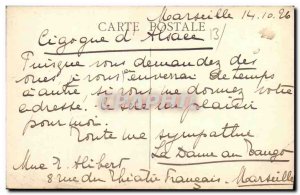 Marseille 14.10.26
CARTE POSTALE
13/
Cigogne d'Alsace
Puisque vous demandez des
vues, je vous enverrai de temps
à autre si vous me donnez votre
adresse. le plaisir
pour moi.
Toute ma sympathie
La Dame au Tango
Mme R. Alibert
8 rue du Théâtre Français. Marseille